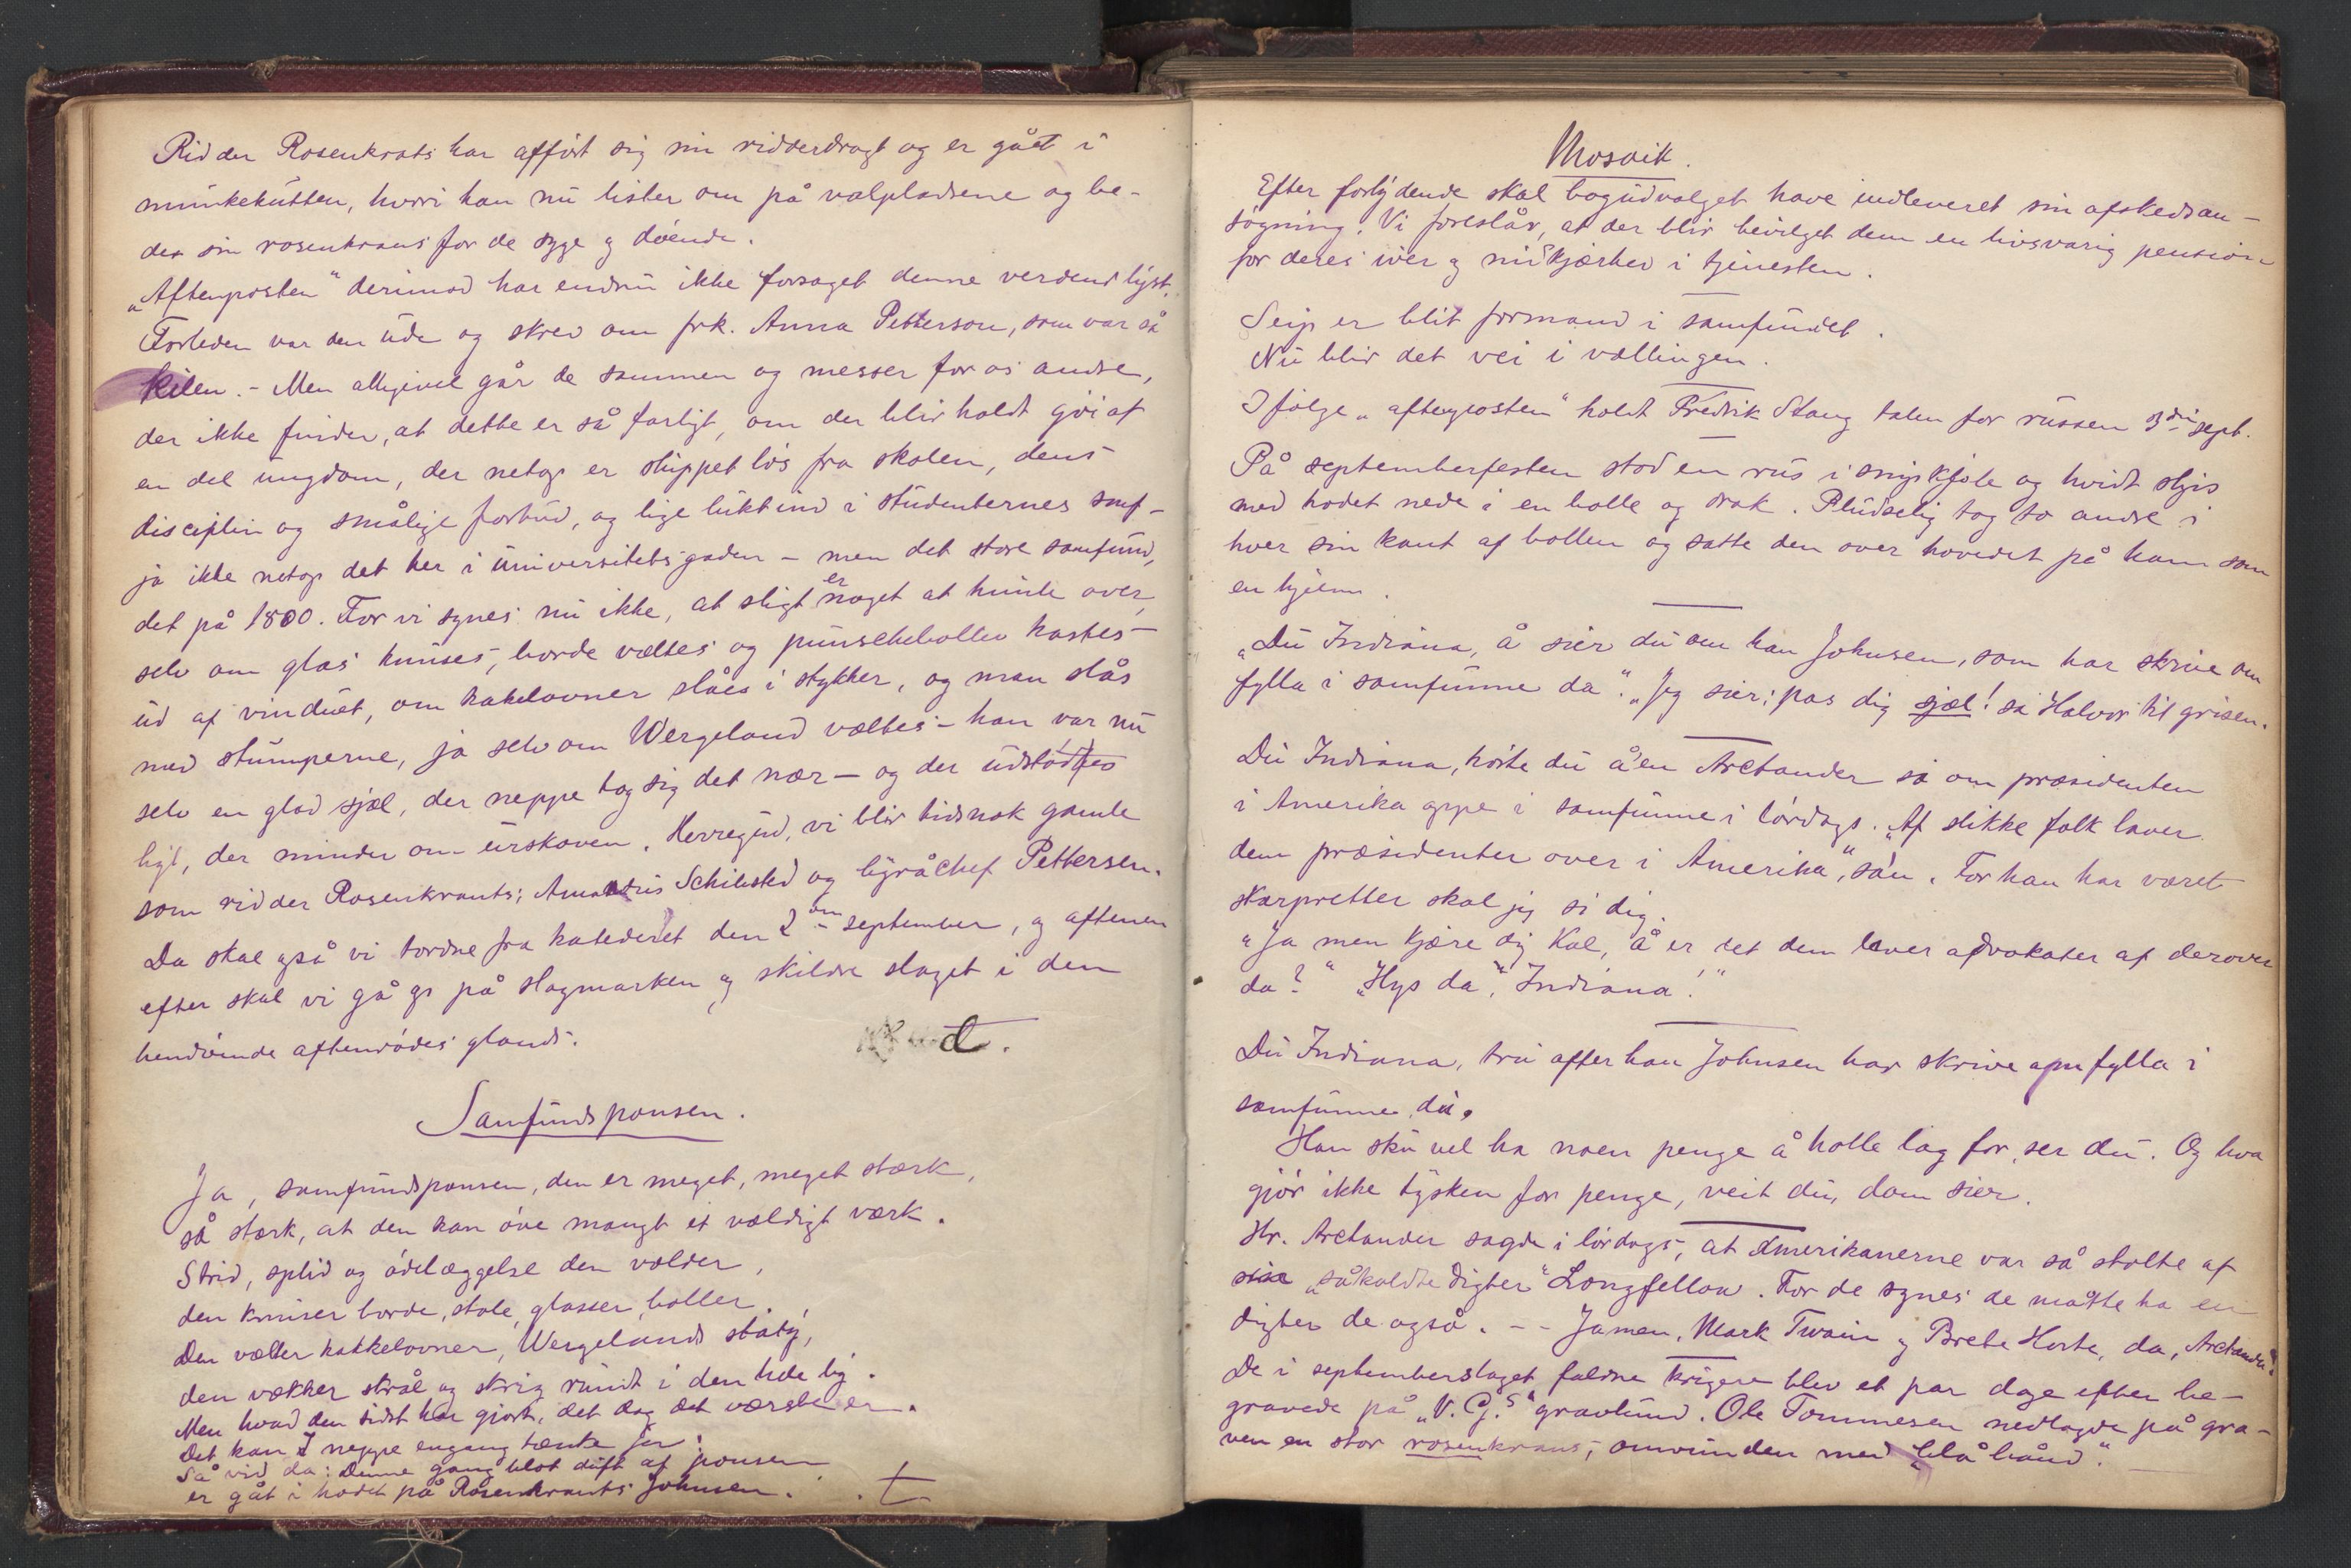 Ridder Rosenkrats har afført sig sin ridderdragt og er gået i
munkekutten, hvori han nu lister om på valpladsene og be-
der sin rosenkrans for de syge og døende.
„Aftenposten“ derimod har endnu ikke forsaget denne verdens lyst.
Forleden var den ude og skrev om frk. Anna Petterson, som var så
kilen. - Men alligevel går de sammen og messer for os andre,
der ikke finder, at dette er så farligt, om der blir holdt gøi af
en del ungdom, der netop er sluppet løs fra skolen, dens
disciplin og smålige forbud, og lige lukt ind i studenternes samf-
ja ikke netop det her i universitetsgaden - men det store samfund,
det på 1800. For vi synes nu ikke, at sligt er noget at hunle over,
selv om glas knuses, borde væltes og punschebollen kastes
ud af vinduet, om kakelovner slåes i stykker, og man slås
med stumperne, ja selv om Wergeland væltes - han var nu
selv en glad sjæl, der neppe tog sig det nær - og der udstødes
hyl, der minder om urskoven. Herregud, vi blir tidsnok gamle
som ridder Rosenkrants, Amandus Schibsted og byråchef Pettersen.
Da skal også vi tordne fra katederet den 2den september, og aftenen
efter skal vi gå op på slagmarken og skildre slaget i den
hendøende aftenrødes glands.
Samfundsponsen.
Ja, samfundsponsen, den er meget, meget stærk,
så stærk, at den kan øve mangt et vældigt værk.
Strid, splid og ødelæggelse den volder,
den knuser borde, stole, glasser, boller.
Den vælter kakkelovner, Wergelands staty,
den vækker skrål og skrig rundt i den hele by.
Men hvad den sidst har gjort, det dog det værste er.
Det kan I neppe engang tænke jer:
Så vid da: Denne gang blot duft af ponsen
er gåt i hodet på Rosenkrants Johnsen. t
Mosaik.
Efter forlydende skal bogudvalget have indleveret sin afskedsan-
søgning. Vi foreslår, at der blir bevilget dem en livsvarig pension
for deres iver og nidkjærhed i tjenesten.
Seip er blit formand i samfundet.
Nu blir det vei i vællingen.
Ifølge „aftenposten“ holdt Fredrik Stang talen for russen 3die sept.
På septemberfesten stod en rus i snipkjole og hvidt slips
med hodet nede i en bolle og drak. Pludselig tog to andre i
hver sin kant af bollen og satte den over hovedet på ham som
en hjelm.
„Du Indiana, å sier du om han Johnsen, som har skrive om
fylla i samfunne da“. „Jeg sier: pas dig sjæl! sa Halvor til grisen.
Du Indiana, hørte du å'en Arctander sa om præsidenten
i Amerika oppe i samfunne i lørdags. „Af slikke folk laver
dem præsidenter over i Amerika“, sa'n. For han har været
skarpretter skal jeg si dig.
„Ja men kjære dig Kal, å er det dem laver advokater af derover
da?“ „Hys da, Indiana!“
Du Indiana, tru affer han Johnsen har skrive om fylla i
samfunne, du.
Han sku vel ha noen penge å holle lag for, ser du. Og hva
gjør ikke tysken for penge, veit du, dom sier.
Hr. Arctander sagde i lørdags, at Amerikanerne var så stolte af
sin „såkaldte digter“ Longfellow. For de synes de måtte ha en
digter de også. - - Jamen, Mark Twain og Brete Harte, da, Arctander?
De i septemberslaget faldne krigere blev et par dage efter be-
gravede på „V. G.s“ gravlund. Ole Tommesen nedlagde på gra-
ven en stor rosenkrans, omvunden med „blå bånd“.